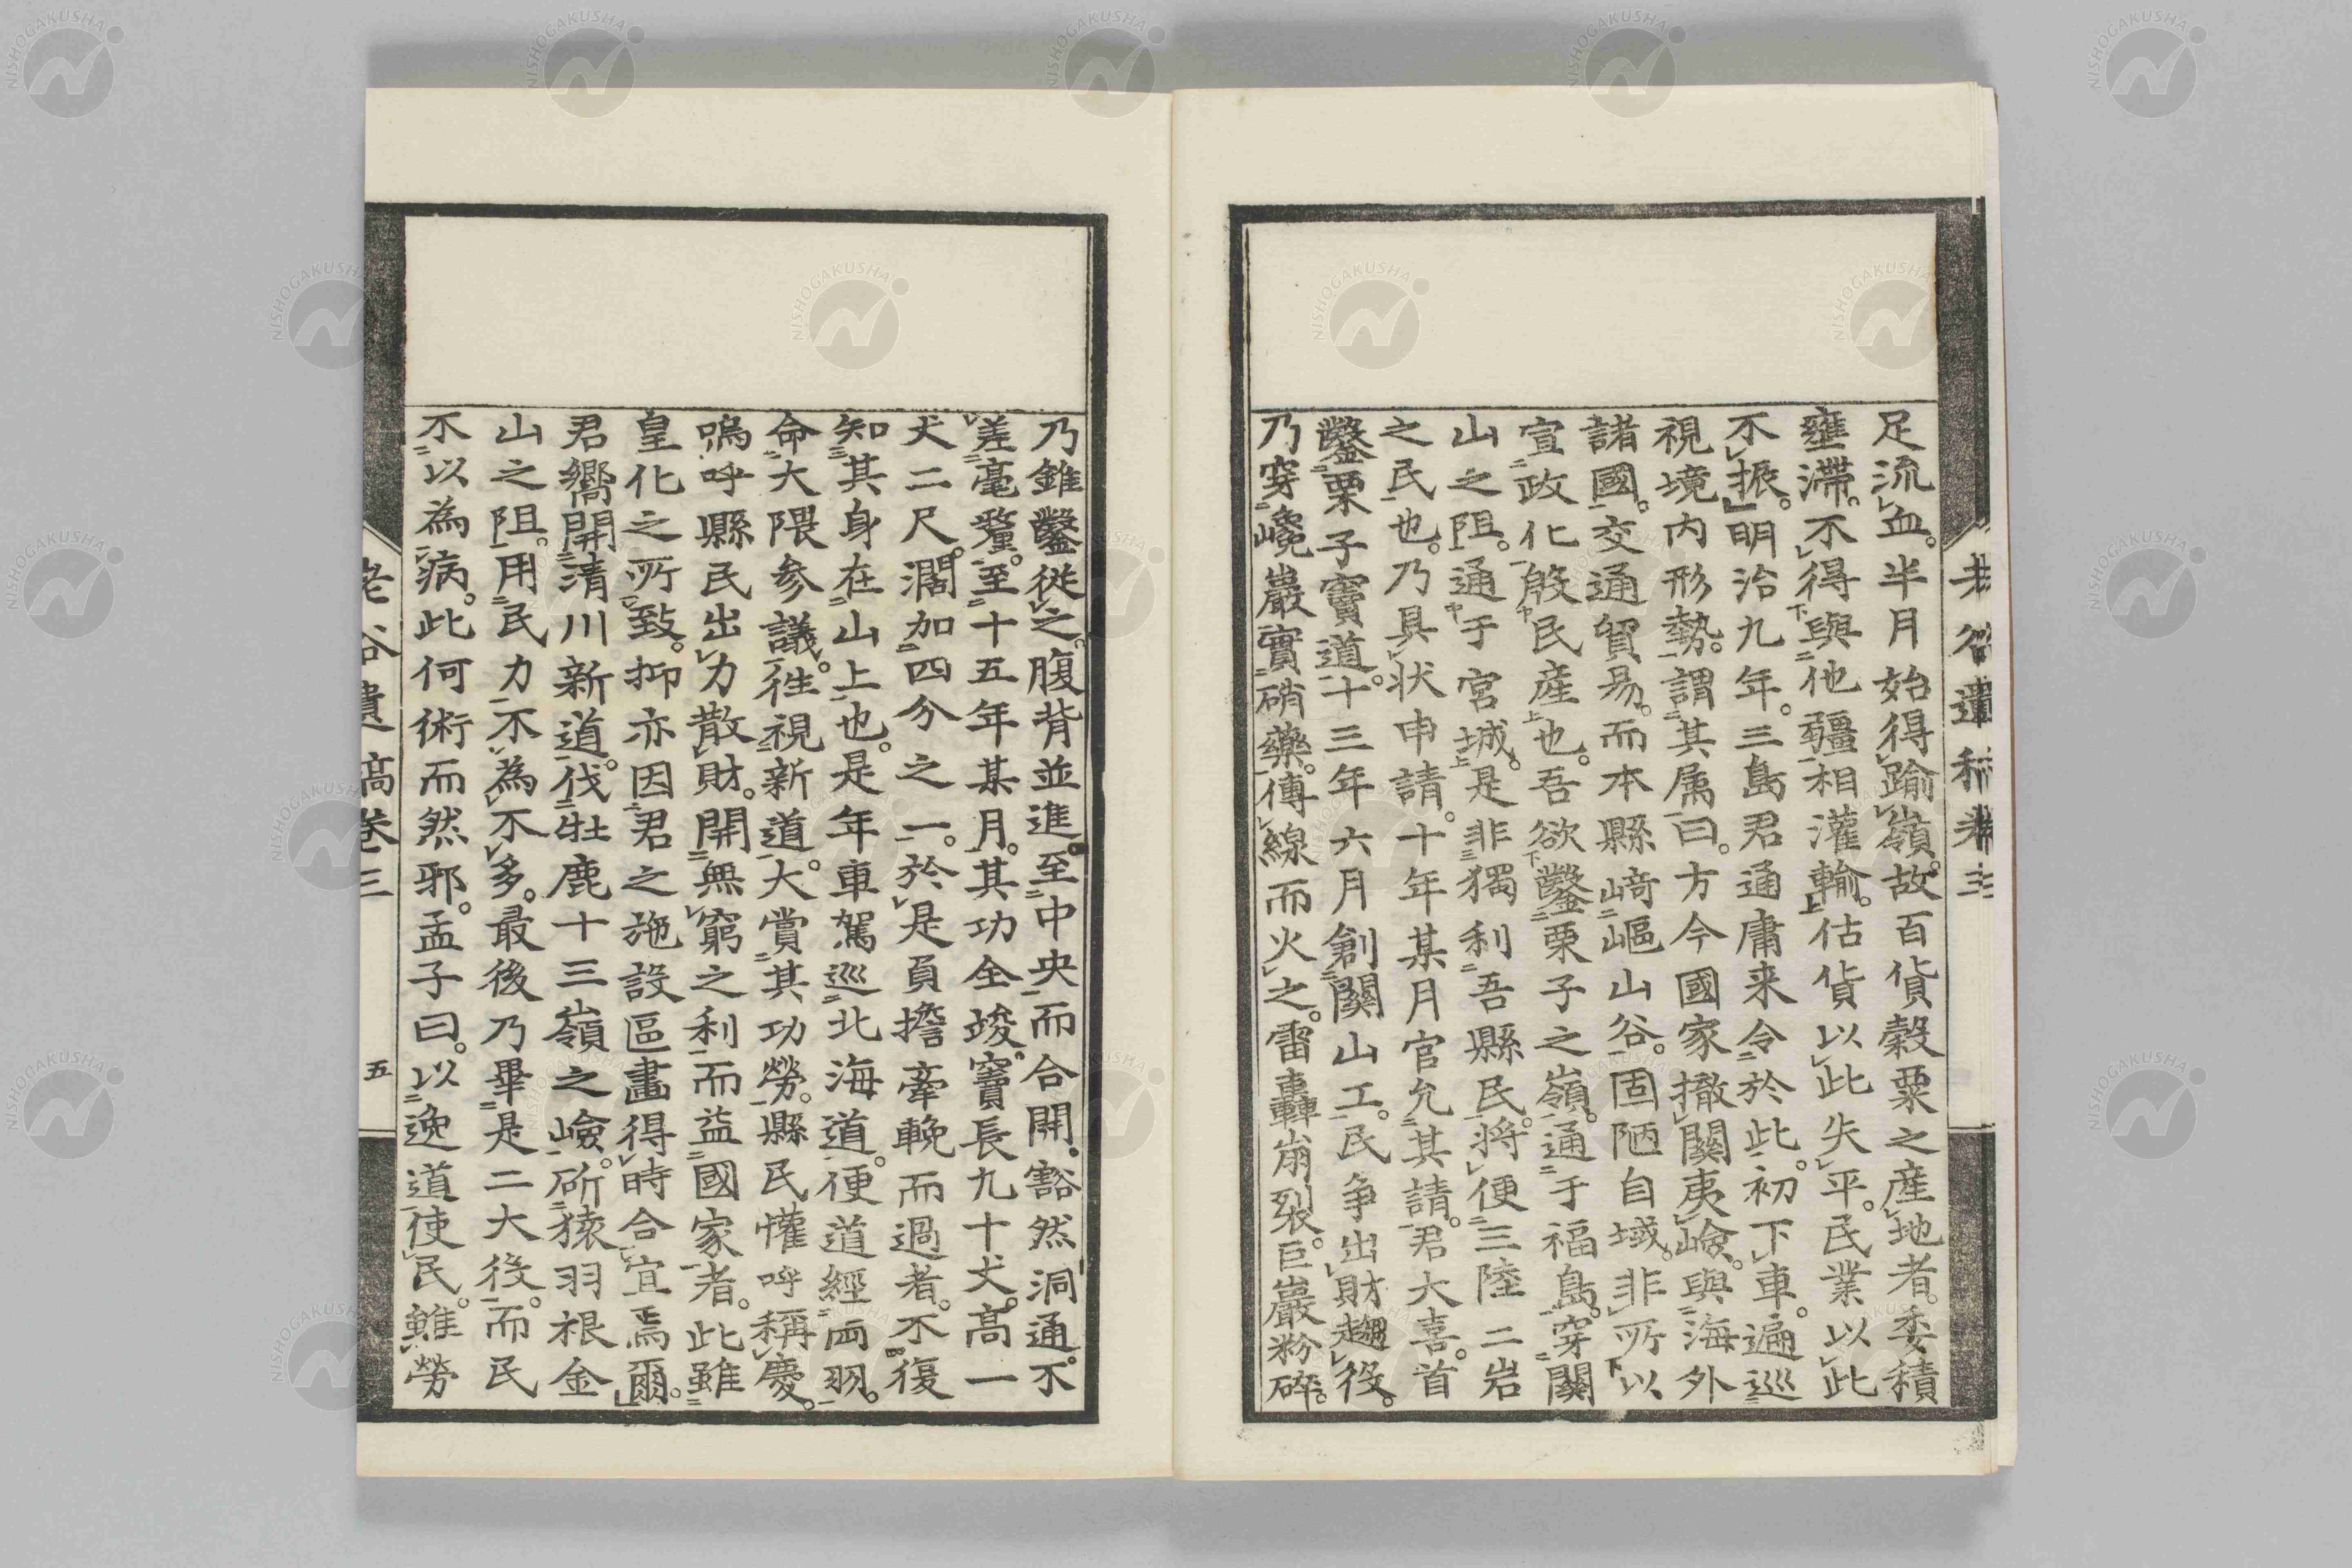 足流血。半月始得踰嶺。故百貨穀粟之産地者。委積
壅滯。不得與他疆相灌輸。估貨以此失平。民業以此
不振。明治九年。三島君通庸来令於此。初下車。遍巡
視境内形勢。謂其属曰。方今國家撤關夷嶮。與海外
諸國。交通貿易。而本縣﨑嶇山谷。固陋自域。非所以
宣政化殷民産也。吾欲鑿栗子之嶺。通于福島。穿關
山之阻。通于宮城。是非獨利吾縣民。将便三陸二岩
之民也。乃具状申請。十年某月官允其請。君大喜。首
鑿栗子竇道。十三年六月創關山工。民争出財趨役。
乃穿巉巖實硝藥。傳線而火之。雷轟崩裂。巨巖粉碎。
老谷遺稿卷三
乃錐鑿従之。腹背並進。至中央而合開。豁然洞通。不
差毫釐。至十五年某月。其功全竣。竇長九十丈。高一
丈二尺。濶加四分之一。於是負擔牽輓而過者。不復
知其身在山上也。是年車駕巡北海道。便道經両羽。
命大隈参議。徃視新道。大賞其功勞。縣民懽呼稱慶。
嗚呼縣民出力散財。開無窮之利而益國家者。此雖
皇化之所致。抑亦因君之施設區畫得時合宜焉爾。
君嚮開清川新道。伐牡鹿十三嶺之嶮。斫猿羽根金
山之阻。用民力不為不多。最後乃畢是二大役。而民
不以為病。此何術而然邪。孟子曰。以逸道使民。雖勞
老谷遺稿卷三
五
NISHOGAKUSHA